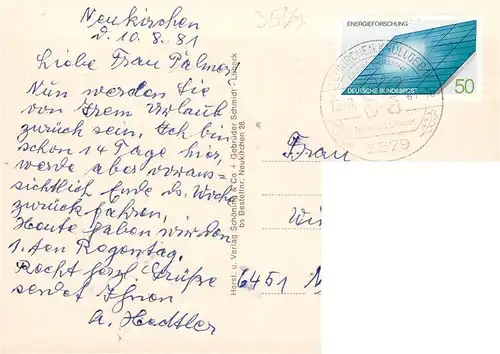 Neukirchen
d. 10.8.81
Liebe Frau Palmer,
Nun werden Sie
von Irem Urlaub
zurück sein. Ich bin
schon 14 Tage hier,
werde aber voraus-
sichtlich Ende ds. Woche
zurück fahren.
Heute haben wir den
1. ten Regentag.
Recht herzl. Grüße
sendet Ihnen
A. Hedtler
3579
ENERGIEFORSCHUNG
DEUTSCHE BUNDESPOST
50
3579
Frau
6451
Horst. u. Verlag Schöning & Co + Gebrüder Schmidt - Lübeck
bs Bestellnr. Neukirchen 28